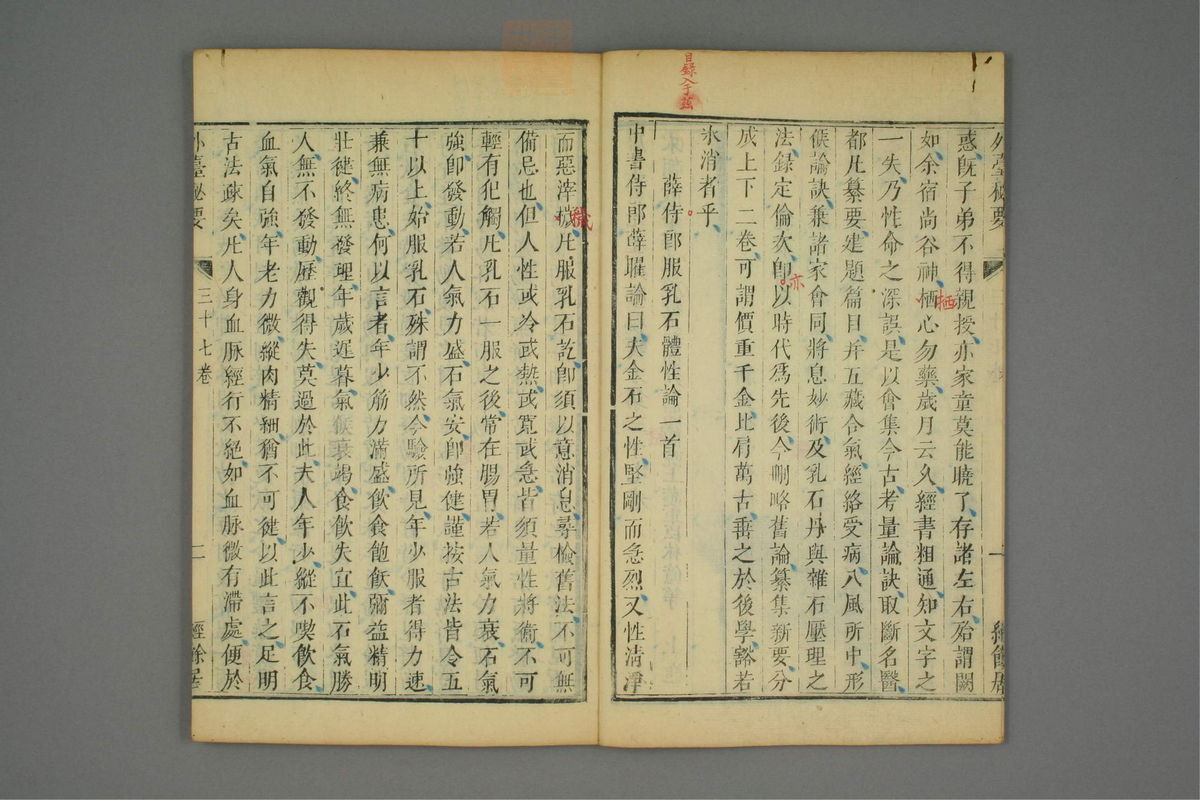 目錄入于茲
外臺秘要
一
經餘居
惑旣子弟不得親授亦家童莫能曉了存諸左右殆謂闕
如余宿尚谷神栖心勿藥歲月云久經書粗通知文字之
栖
一失乃性命之深誤是以會集今古考量論訣取斷名醫
都凡纂要建題篇目幷五藏合氣經絡受病八風所中形
候論訣兼諸家會同將息妙術及乳石丹與雜石壓理之
法錄定倫次卽以時代爲先後今刪略舊論纂集新要分
亦
成上下二卷可謂價重千金比肩萬古垂之於後學豁若
氷消者乎
薛侍郎服乳石體性論一首
中書侍郎薛曜論曰夫金石之性堅剛而急烈又性淸淨
而惡滓穢凡服乳石訖卽須以意消息尋檢舊法不可無
穢
備忌也但人性或冷或熱或寬或急皆須量性將衞不可
輕有犯觸凡乳石一服之後常在腸胃若人氣力衰石氣
強卽發動若人氣力盛石氣安卽強健謹按古法皆令五
十以上始服乳石殊謂不然今驗所見年少服者得力速
兼無病患何以言者年少筋力滿盛飮食飽飫彌益精明
壯健終無發理年歲遲暮氣候衰竭食飮失宜此石氣勝
人無不發動歷觀得失莫過於此夫人年少縱不喫飮食
血氣自強年老力微縱肉精細猶不可健以此言之足明
古法疎矣凡人身血脈經行不絕如血脈微有滯處便於
外臺秘要
三十七卷
二
經餘居